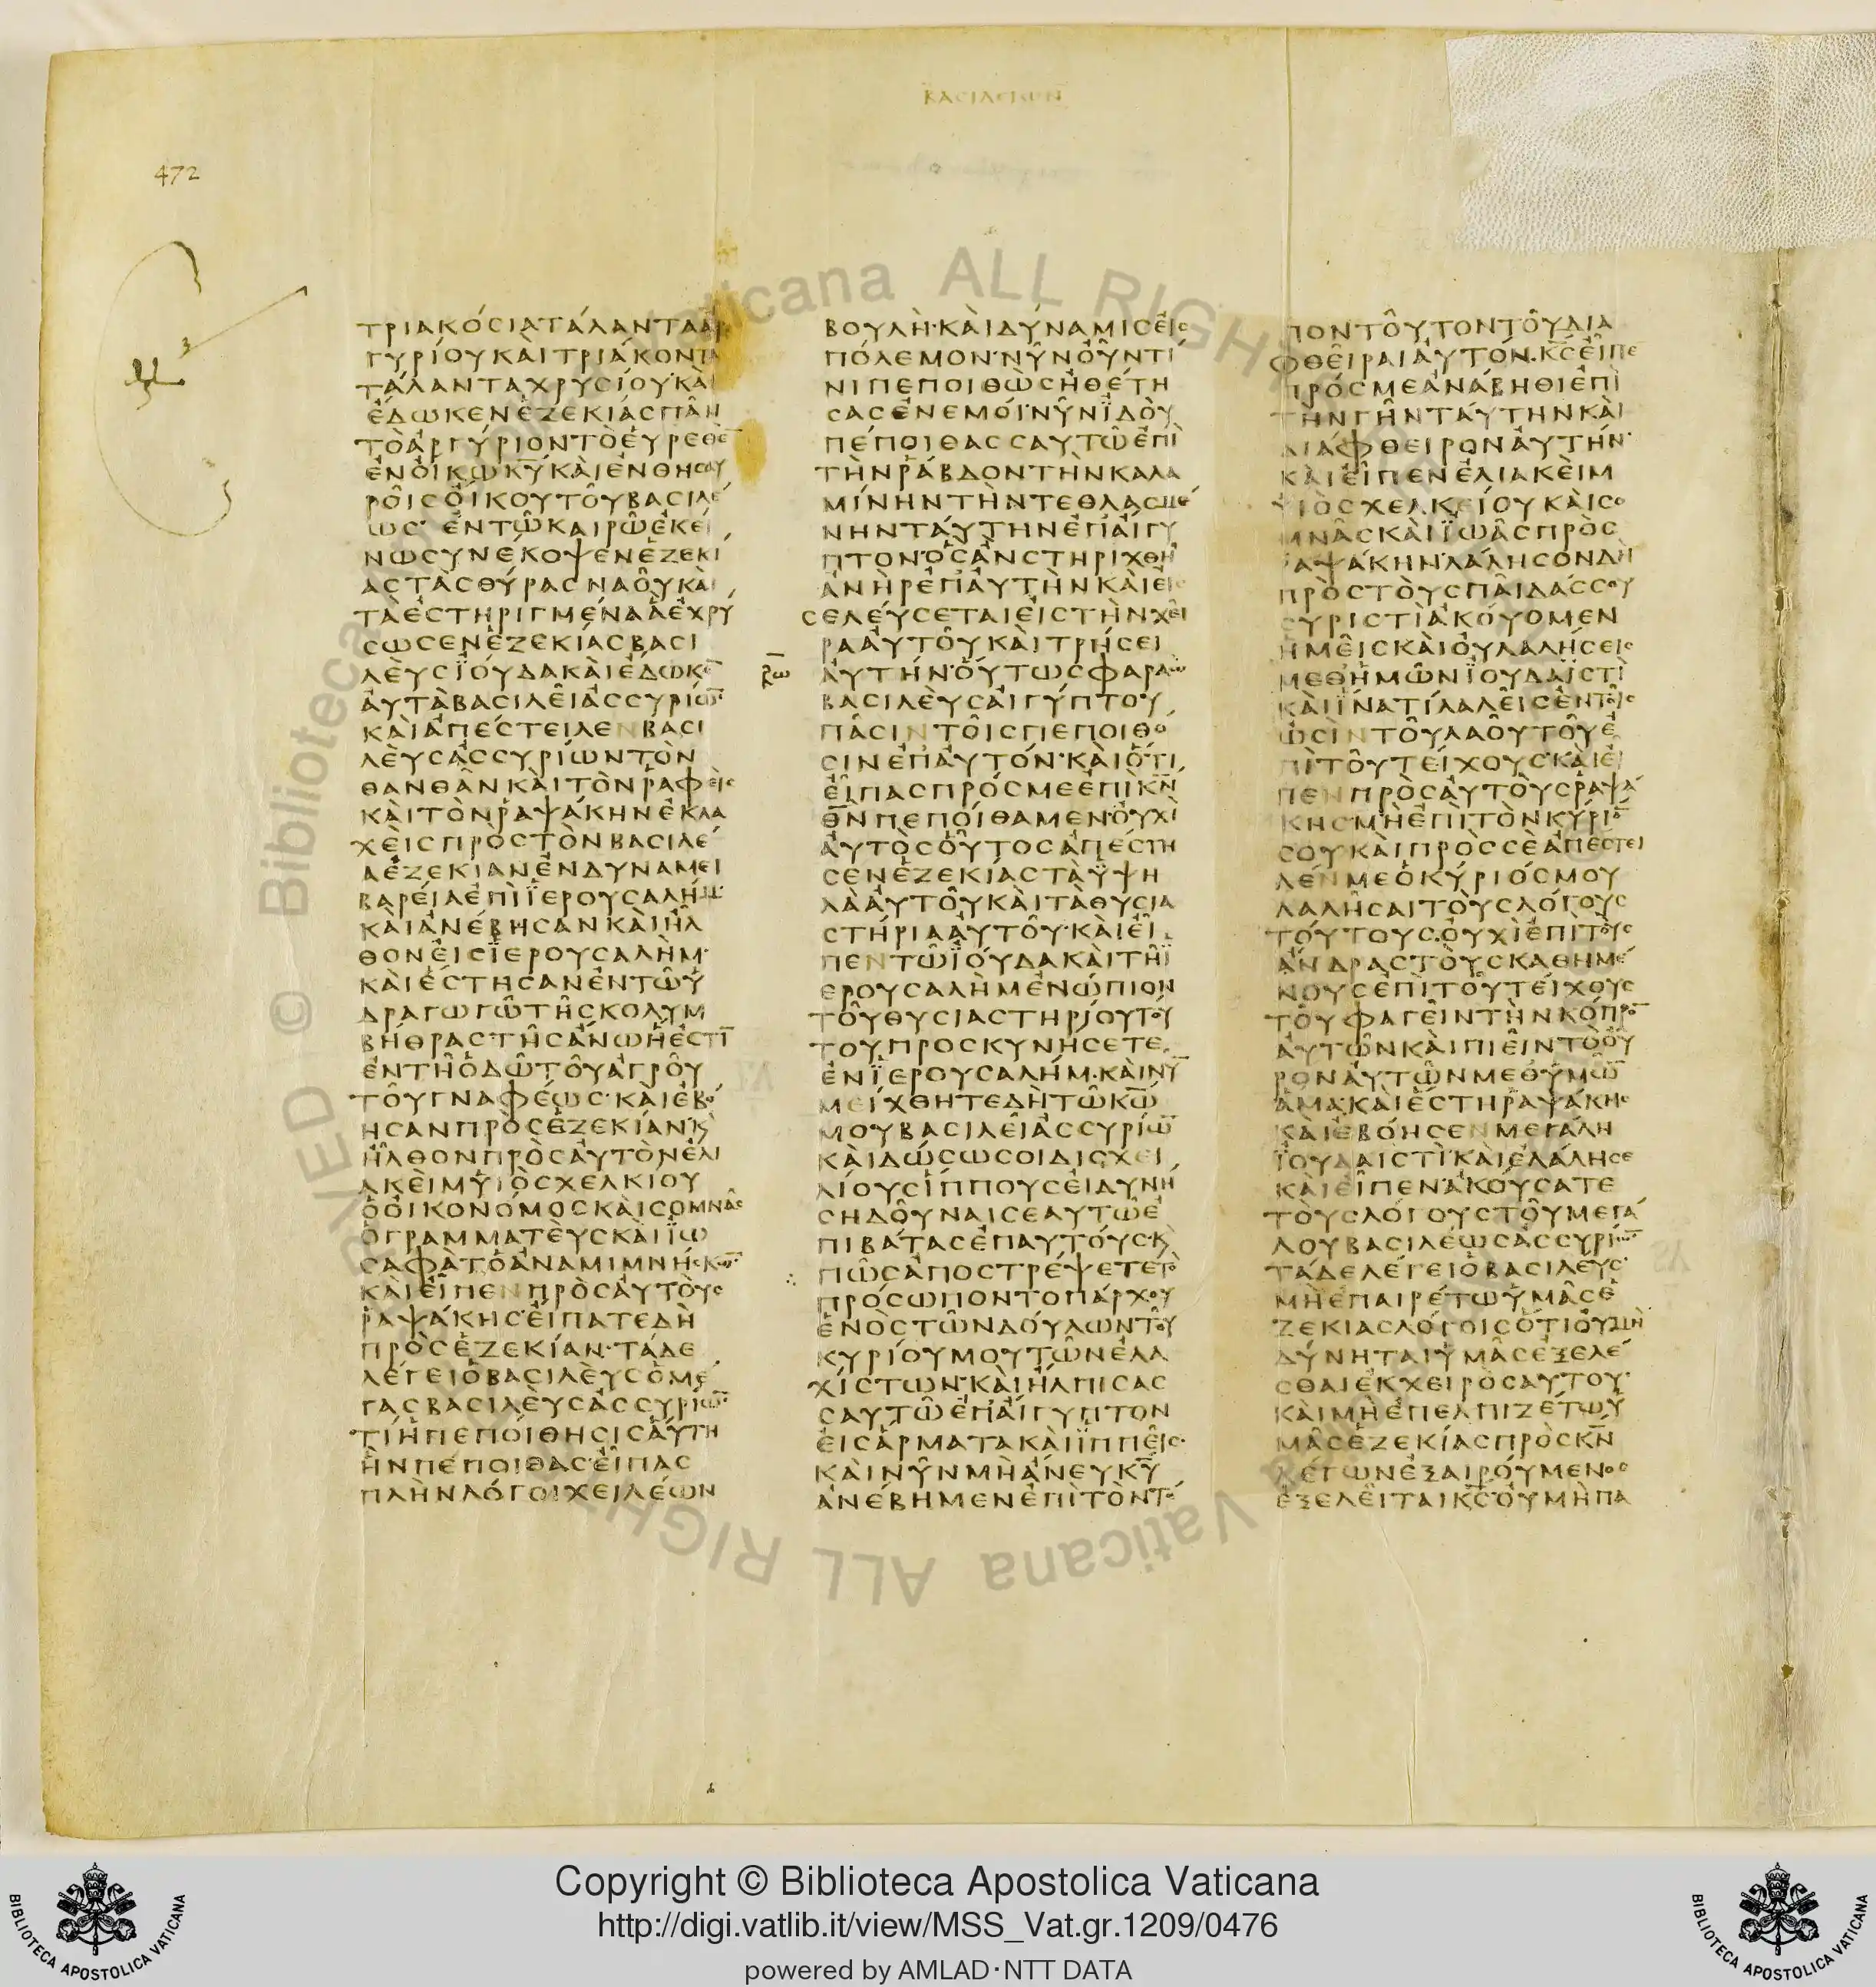 ΒΑΣΙΛΕΙΩΝ
472
ΤΡΙΑΚΌϹΙΑΤΆΛΑΝΤΑΑΡ
ΓΥΡΊΟΥΚΑῚΤΡΙΆΚΟΝΤΑ
ΤΆΛΑΝΤΑΧΡΥϹΊΟΥ·ΚΑῚ
ἘΔΩΚΕΝἘΖΕΚΊΑϹΠΑ͂Ν
ΤῸἈΡΓΎΡΙΟΝΤῸΕὙΡΕΘῈ̅
ἘΝΟἼΚΩΚ̅Υ̅ΚΑῚἘΝΘΗϹΑΥ
ΡΟΙ͂ϹΟἼΚΟΥΤΟΥ͂ΒΑϹΙΛΈ
ΩϹ· ἘΝΤΩ͂ΚΑΙΡΩ͂ἘΚΕΊ
ΝΩϹΥΝΈΚΟΨΕΝἘΖΕΚΙ
ΑϹΤᾺϹΘΎΡΑϹΝΑΟΥ͂ΚΑῚ
ΤᾺἘϹΤΗΡΙΓΜΈΝΑἋἘΧΡΎ
ϹΩϹΕΝἘΖΕΚΊΑϹΒΑϹΙ
ΛΕῪϹΪΟΎΔΑΚΑῚἘΔΩΚΕ̅
ἈΥΤᾺΒΑϹΙΛΕΙ͂ἈϹϹΥΡΊΩ̅
ΚΑῚἈΠΈϹΤΕΙΛΕΝΒΑϹΙ
ΛΕῪϹἈϹϹΥΡΊΩΝΤῸΝ
ΘΑΝΘΑ͂ΝΚΑῚΤῸΝΡΑΦΕῚϹ
ΚΑῚΤῸΝΡΑΨΆΚΗΝἘΚΛΑ
ΧΕῚϹΠΡῸϹΤῸΝΒΑϹΙΛΈ
ΑἘΖΕΚΙΑΝἘΝΔΥΝΑΜΕΙ
ΒΑΡΕΊΑἘΠῚΪΕΡΟΥϹΑΛΉΜ·
ΚΑῚἈΝΈΒΗϹΑΝΚΑῚΗ͂Λ
ΘΟΝΕἸϹΪΕΡΟΥϹΑΛῊΜ·
ΚΑῚἘϹΤΗϹΑΝἘΝΤΩ͂Ὑ
ΔΡΑΓΩΓΩ͂ΤΗ͂ϹΚΟΛΥΜ
ΒΉΘΡΑϹΤΗ͂ϹἈΝΩἭἘϹΤΙ̅
ἘΝΤΗ͂ὉΔΩ͂ΤΟΥ͂ἈΓΡΟΥ͂
ΤΟΥ͂ΓΝΑΦΈΩϹ·ΚΑῚἘΒΌ
ΗϹΑΝΠΡῸϹἘΖΕΚΊΑΝ·Κ
ΗΛΘΟΝΠΡῸϹἈΥΤῸΝἘΛΙ
ΑΚΕῚΜὙΙῸϹΧΕΛΚΙΟΥ
ὉΟἸΚΟΝΌΜΟϹΚΑῚϹΟΜΝΑ͂Ϲ
ὉΓΡΑΜΜΑΤΕῪϹΚΑῚΪΩ
ϹΑΦᾺΤὉἈΝΑΜΙΜΝΉϹΚΩ̅·
ΚΑῚΕἾΠΕΝΠΡῸϹἈΥΤΟῪϹ
ΡΑΨΆΚΗϹ·ΕἸΠΑΤΕΔῊ
ΠΡῸϹἘΖΕΚΊΑΝ·ΤΆΔΕ
ΛΈΓΕΙὉΒΑϹΙΛΕῪϹὉΜΈ
ΓΑϹΒΑϹΙΛΕῪϹἈϹϹΥΡΊΩ̅·
ΤΊἩΠΕΠΟΊΘΗϹΙϹἈΎΤΗ
ἪΝΠΈΠΟΙΘΑϹ·ΕἾΠΑϹ
ΠΛῊΝΛΌΓΟΙΧΕΙΛΈΩΝ
ΒΟΥΛῊ·ΚΑῚΔΎΝΑΜΙϹΕἸϹ
ΠΌΛΕΜΟΝ·ΝΥ͂ΝΟΥ͂ΝΤΊ
ΝΙΠΕΠΟΙΘῺϹἨΘΈΤΗ
ϹΑϹἘΝΕΜΟΊ·ΝΥ͂ΝἸΔΟῪ
ΠΈΠΟΙΘΑϹϹΑΥΤΩ͂ἘΠῚ
ΤῊΝΡΆΒΔΟΝΤῊΝΚΑΛΑ
ΜΊΝΗΝΤῊΝΤΕΘΛΑϹΜΈ
ΝΗΝΤΑΎΤΗΝΕΠἌΙΓΥ
ΠΤΟΝ·ὋϹἈΝϹΤΗΡΙΧΘΗ͂
ἈΝῊΡἘΠἈΥΤῊΝΚΑῚΕἸϹ
ϹΕΛΕΎϹΕΤΑΙΕἸϹΤῊΝΧΕΙ͂
ΡΑἈΥΤΟΥ͂ΚΑῚΤΡΉϹΕΙ
ἈΥΤΉΝ·ΟὝΤΩϹΦΑΡΑῺ
ΒΑϹΙΛΕῪϹΑἸΓΎΠΤΟΥ
ΠΑ͂ϹΙΝΤΟΙ͂ϹΠΕΠΟΙΘΌ
ϹΙΝΕΠἈΥΤΌΝ·ΚΑῚὍΤΙ
ΕἾΠΑϹΠΡΌϹΜΕἘΠῚΚ̅Ν̅
Θ̅Ν̅ΠΕΠΟΊΘΑΜΕΝ·ΟΥ̓ΧῚ
ἈΥΤῸϹΟΥ͂ΤΟϹἈΠΈϹΤΗ
ϹΕΝἘΖΕΚΊΑϹΤᾺΫΨΗ
ΛᾺἈΥΤΟΥ͂ΚΑῚΤᾺΘΥϹΙΑ
ϹΤΉΡΙΑἈΥΤΟΥ͂·ΚΑῚΕἾ
ΠΕΝΤΩ͂ΪΟΎΔΑΚΑῚΤΗ͂Ϊ
ΕΡΟΥϹΑΛῊΜἘΝΏΠΙΟΝ
ΤΟΥ͂ΘΥϹΙΑϹΤΗΡΊΟΥΤΟΎ
ΤΟΥΠΡΟϹΚΥΝΉϹΕΤΕ
ἘΝΪΕΡΟΥϹΑΛΉΜ·ΚΑῚΝΥ̅
ΜΕΊΧΘΗΤΕΔῊΤΩ͂Κ̅Ω̅
ΜΟΥΒΑϹΙΛΕΙ͂ἈϹϹΥΡΊΩ̅
ΚΑῚΔΏϹΩϹΟΙΔΙϹΧΕΙ
ΛΊΟΥϹΪΠΠΟΥϹΕἸΔΥΝΉ
ϹΗΔΟΥ͂ΝΑΙϹΕΑΥΤΩ͂Ἐ
ΠΙΒΆΤΑϹἘΠΑΥΤΟΎϹ·Κ
ΠΩ͂ϹἈΠΟϹΤΡΈΨΕΤΕΤῸ
ΠΡΌϹΩΠΟΝΤΟΠΆΡΧΟΥ
ἙΝῸϹΤΩ͂ΝΔΟΎΛΩΝΤΟΥ͂
ΚΥΡΊΟΥΜΟΥΤΩ͂ΝἘΛΑ
ΧΊϹΤΩΝ·ΚΑῚἨΛΠΙϹΑϹ
ϹΑΥΤΩ͂ἘΠἌΙΓΥΠΤΟΝ
ΕἸϹἍΡΜΑΤΑΚΑῚΪΠΠΕΙ͂Ϲ·
ΚΑῚΝΥ͂ΝΜῊἈΝΕΥΚ̅Υ̅
ἈΝΈΒΗΜΕΝἘΠῚΤῸΝΤΌ
ΠΟΝΤΟΥ͂ΤΟΝΤΟΥ͂ΔΙΑ
ΦΘΕΙ͂ΡΑΙἈΥΤΌΝ·Κ̅Ϲ̅ΕἾΠΕ
ΠΡΌϹΜΕἈΝΆΒΗΘΙἘΠῚ
ΤῊΝΓΗ͂ΝΤΑΎΤΗΝΚΑῚ
ΔΙΆΦΘΕΙΡΟΝἈΥΤΉΝ·
ΚΑῚΕἾΠΕΝἘΛΙΑΚΕῚΜ
ΥἹῸϹΧΕΛΚΕΊΟΥΚΑῚϹΟ
ΜΝΑ͂ϹΚΑῚΪΩΑ͂ϹΠΡῸϹ
ΡΑΨΆΚΗΝ·ΛΆΛΗϹΟΝΔῊ
ΠΡῸϹΤΟῪϹΠΑΙ͂ΔΆϹϹΟΥ
ϹΥΡΙϹΤῚἈΚΟΎΟΜΕΝ
ἩΜΕΙ͂ϹΚΑῚΟΥ̓ΛΑΛΉϹΕΙϹ
ΜΕΘἩΜΩ͂ΝΪΟΥΔΑΪϹΤῚ
ΚΑῚΪΝΑΤΊΛΑΛΕΙ͂ϹἘΝΤΟΙ͂Ϲ
ΩϹῚΝΤΟΥ͂ΛΑΟΥ͂ΤΟΥ͂Ἐ
ΠῚΤΟΥ͂ΤΕΊΧΟΥϹ·ΚΑῚΕἾ
ΠΕΝΠΡῸϹἈΥΤΟῪϹΡΑΨΆ
ΚΗϹ·ΜῊἘΠῚΤῸΝΚΎΡΙΌ̅
ϹΟΥΚΑῚΠΡῸϹϹῈἈΠΈϹΤΕΙ
ΛΈΝΜΕὉΚΎΡΙΌϹΜΟΥ
ΛΑΛΗ͂ϹΑΙΤΟῪϹΛΌΓΟΥϹ
ΤΟΎΤΟΥϹ·ΟΥ̓ΧῚἘΠῚΤΟῪϹ
ἈΝΔΡΑϹΤΟῪϹΚΑΘΗΜΈ
ΝΟΥϹἘΠῚΤΟΥ͂ΤΕΊΧΟΥϹ
ΤΟΥ͂ΦΑΓΕΙ͂ΝΤῊΝΚΌΠΡΟ̅
ἈΥΤΩ͂ΝΚΑῚΠΙΕΙ͂ΝΤῸΟΥ͂
ΡΟΝἈΥΤΩ͂ΝΜΕΘὙΜΩ̅
ἍΜΑ·ΚΑῚἘϹΤΗΡΑΨΆΚΗϹ
ΚΑῚἘΒΌΗϹΕΝΜΕΓΆΛΗ
ΪΟΥΔΑΙϹΤῚ·ΚΑῚἘΛΆΛΗϹΕ
ΚΑῚΕἾΠΕΝ·ἈΚΟΎϹΑΤΕ
ΤΟῪϹΛΌΓΟΥϹΤΟΥ͂ΜΕΓΆ
ΛΟΥΒΑϹΙΛΈΩϹἈϹϹΥΡΊΩ̅
ΤΆΔΕΛΈΓΕΙὉΒΑϹΙΛΕΎϹ·
ΜῊἘΠΑΙΡΈΤΩὙΜΑ͂ϹἘ
ΖΕΚΙΑϹΛΌΓΟΙϹὍΤΙΟΥ̓ΜῊ
ΔΎΝΗΤΑΙὙΜΑ͂ϹἘΞΕΛΈ
ϹΘΑΙἘΚΧΕΙΡῸϹΑΥΤΟΥ·
ΚΑῚΜῊἘΠΕΛΠΙΖΈΤΩὙ
ΜΑ͂ϹἘΖΕΚΊΑϹΠΡῸϹΚ̅Ν̅
ΛΈΓΩΝἘΞΑΙΡΟΎΜΕΝΟϹ
ἘΞΕΛΕΙ͂ΤΑΙΚ̅Ϲ̅·ΟΥ̓ΜῊΠΑ
Copyright © Biblioteca Apostolica Vaticana
http://digi.vatlib.it/view/MSS_Vat.gr.1209/0476
powered by AMLAD·NTT DATA
BIBLIOTECA APOSTOLICA VATICANA
BIBLIOTECA APOSTOLICA VATICANA